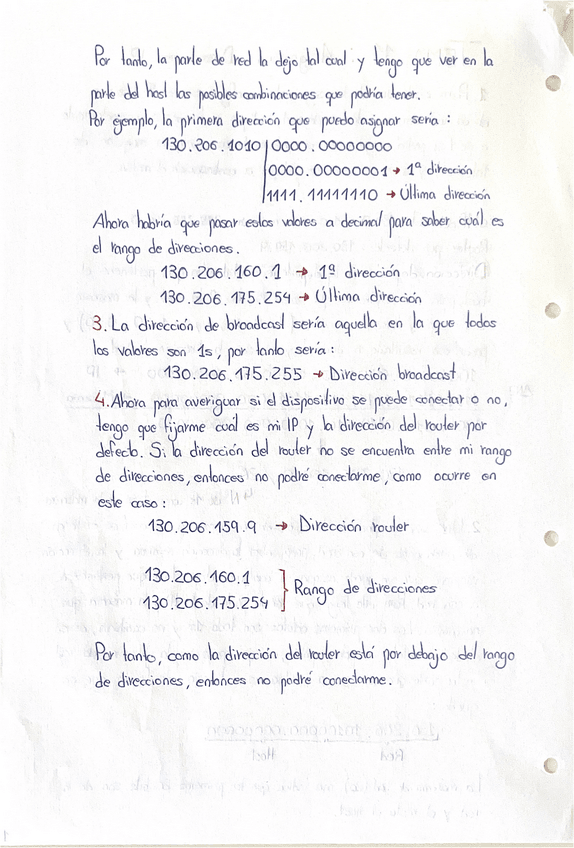 Por tanto, la parte de red la dejo tal cual y tengo que ver en la
parte del host las posibles combinaciones que podría tener.
Por ejemplo, la primera dirección que puedo asignar sería :
130.206.1010|0000.00000000
0000.00000001 → 1ª dirección
1111.11111110 → Última dirección
Ahora habría que pasar estos valores a decimal para saber cuál es
el rango de direcciones.
130.206.160.1 → 1ª dirección
130.206.175.254 → Última dirección
3. La dirección de broadcast sería aquella en la que todos
los valores son 1s, por tanto sería :
130.206.175.255 → Dirección broadcast
4. Ahora para averiguar si el dispositivo se puede conectar o no,
tengo que fijarme cuál es mi IP y la dirección del router por
defecto. Si la dirección del router no se encuentra entre mi rango
de direcciones, entonces no podré conectarme, como ocurre en
este caso :
130.206.159.9 → Dirección router
130.206.160.1
130.206.175.254 ] Rango de direcciones
Por tanto, como la dirección del router está por debajo del rango
de direcciones, entonces no podré conectarme.